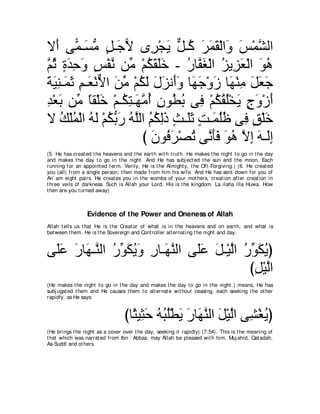 وَالشَّمْسَ وَالْقَمَرَ كُلٌّ يَجْرِى لأًّجَـلٍ مُّسَـمًّى أَلا
هُوَ الْعَزِيزُ الْغَفَّارُ - خَلَقَكُمْ مِّن نَّفْسٍ وَحِدَةٍ ثُمَّ
جَعَلَ مِنْهَا زَوْجَهَا وَأَنزَلَ لَكُمْ مِّنَ الاٌّنْعَـمِ ثَمَـنِيَةَ
أَزْوَجٍ يَخْلُقُكُمْ فِى بُطُونِ أُمَّهَـتِكُـمْ خَلْقاً مِّن بَعْدِ
خَلْقٍ فِى ظُلُمَـتٍ ثَلَـثٍ ذَلِكُمُ اللَّهُ رَبُّكُمْ لَهُ الْمُلْكُ لا
إِلَـهَ إِلاَّ هُوَ فَأَنَّى تُصْرَفُونَ )
(5. He has created the heavens and the earth with truth. He makes the night to go in the day
and makes the day to go in the night. And He has subjected the sun and the moon. Each
running for an appointed term. Verily, He is the Almighty, the Oft-Forgiving.) (6. He created
you (all) from a single person; then made from him his wife. And He has sent down for you of
An`am eight pairs. He creates you in the wombs of your mothers, creation after creation in
three veils of darkness. Such is Allah your Lord. His is the kingdom. La ilaha illa Huwa. How
then are you turned away)
Evidence of the Power and Oneness of Allah
Allah tells us that He is the Creator of what is in the heavens and on earth, and what is
between them. He is the Sovereign and Controller alternating the night and day.
(يُكَوِّرُ الَّيْـلَ عَلَى النَّهَـارِ وَيُكَوِّرُ النَّـهَـارَ عَلَى
الَّيْلِ)
(He makes the night to go in the day and makes the day to go in the night.) means, He has
subjugated them and He causes them to alternate without ceasing, each seeking the other
rapidly, as He says:
(يُغْشِى الَّيْلَ النَّهَارَ يَطْلُبُهُ حَثِيثًا)
(He brings the night as a cover over the day, seeking it rapidly) (7:54). This is the meaning of
that which was narrated from Ibn `Abbas, may Allah be pleased with him, Mujahid, Qatadah,
As-Suddi and others.